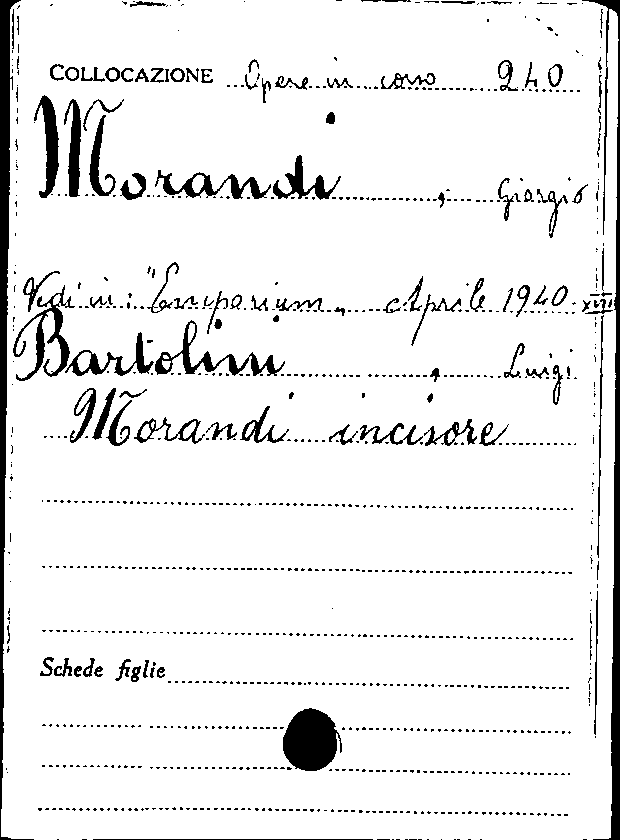 COLLOCAZIONE Opere in corso 240
Morandi , Giorgio
Vedi in: "Emporium„ Aprile 1940-XVIII
Bartolini , Luigi
Morandi incisore
Schede figlie